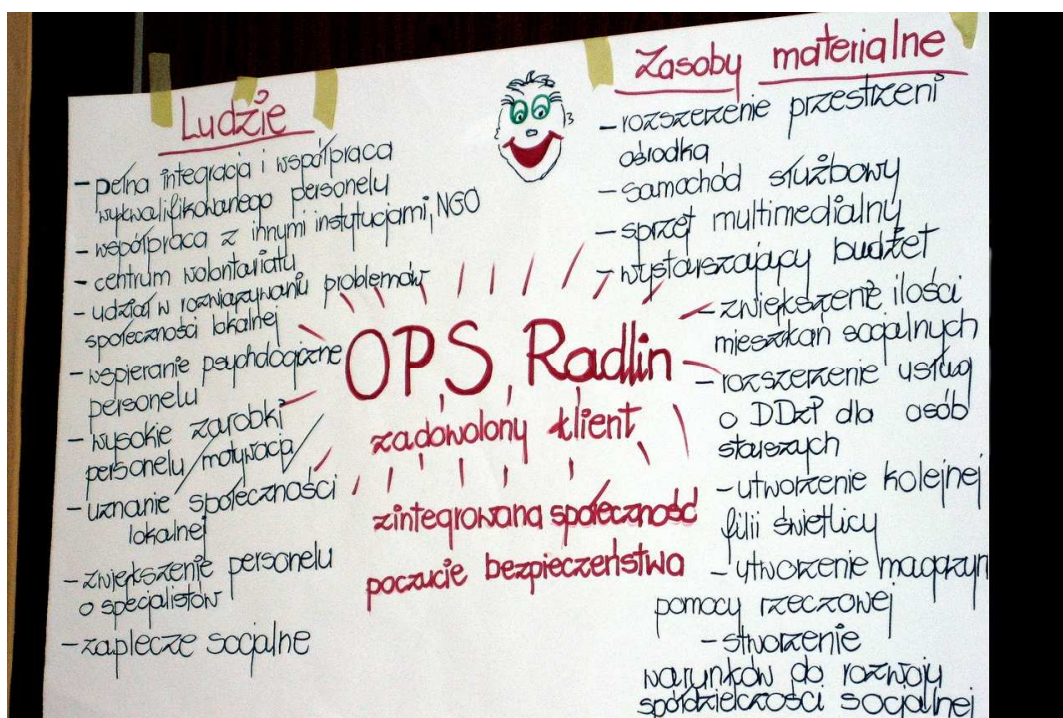 Ludzie
- pełna integracja i współpraca
wykwalifikowanego personelu
- współpraca z innymi instytucjami, NGO
- centrum wolontariatu
- udział w rozwiązywaniu problemów
społeczności lokalnej
- wspieranie psychologiczne
personelu
- wysokie zarobki
personelu /motywacja/
- uznanie społeczności
lokalnej
- zwiększenie personelu
o specjalistów
- zaplecze socjalne
OPS Radlin
zadowolony klient
zintegrowana społeczność
poczucie bezpieczeństwa
Zasoby materialne
- rozszerzenie przestrzeni
ośrodka
- samochód służbowy
- sprzęt multimedialny
- wystarszający budżet
- zwiększenie ilości
mieszkań socjalnych
- rozszerzenie usług
o DDzP dla osób
starszych
- utworzenie kolejnej
filii świetlicy
- utworzenie magazyn
pomocy rzeczowej
- stworzenie
warunków do rozwoju
spółdzielczości socjalnej